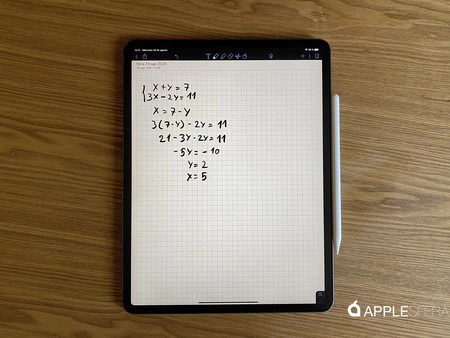 Nota 26 ago 2020
{ x + y = 7
3x - 2y = 11
x = 7 - y
3(7-y) - 2y = 11
21 - 3y - 2y = 11
-5y = -10
y = 2
x = 5
APPLESFERA